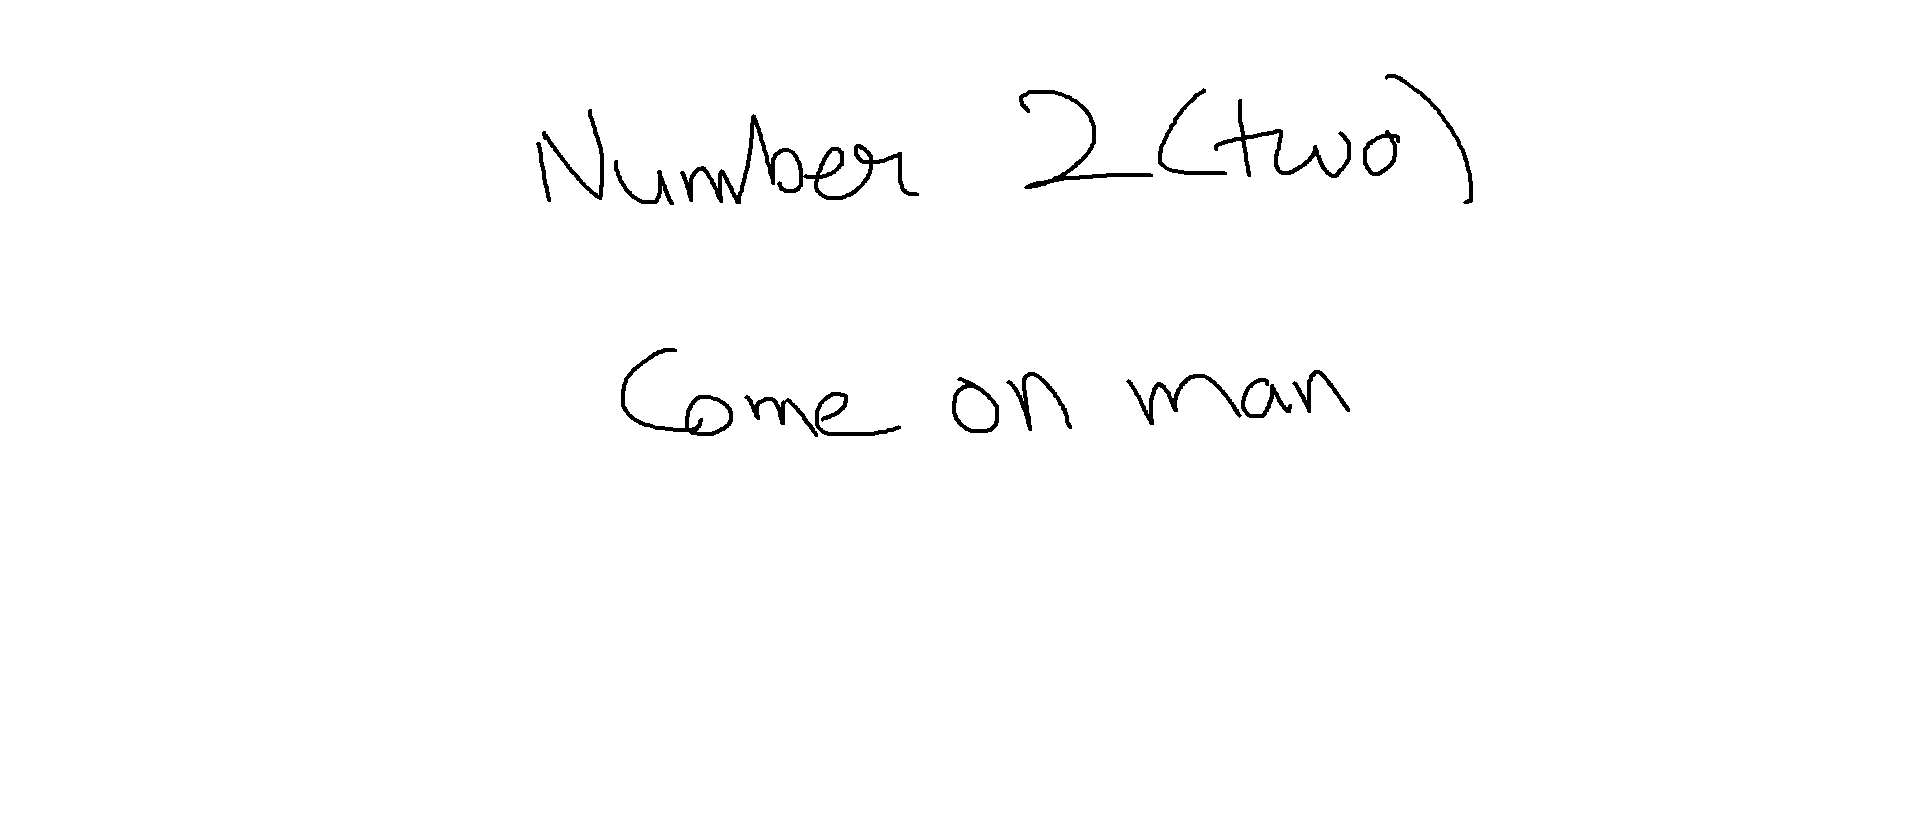 Number 2 (two)
Come on man